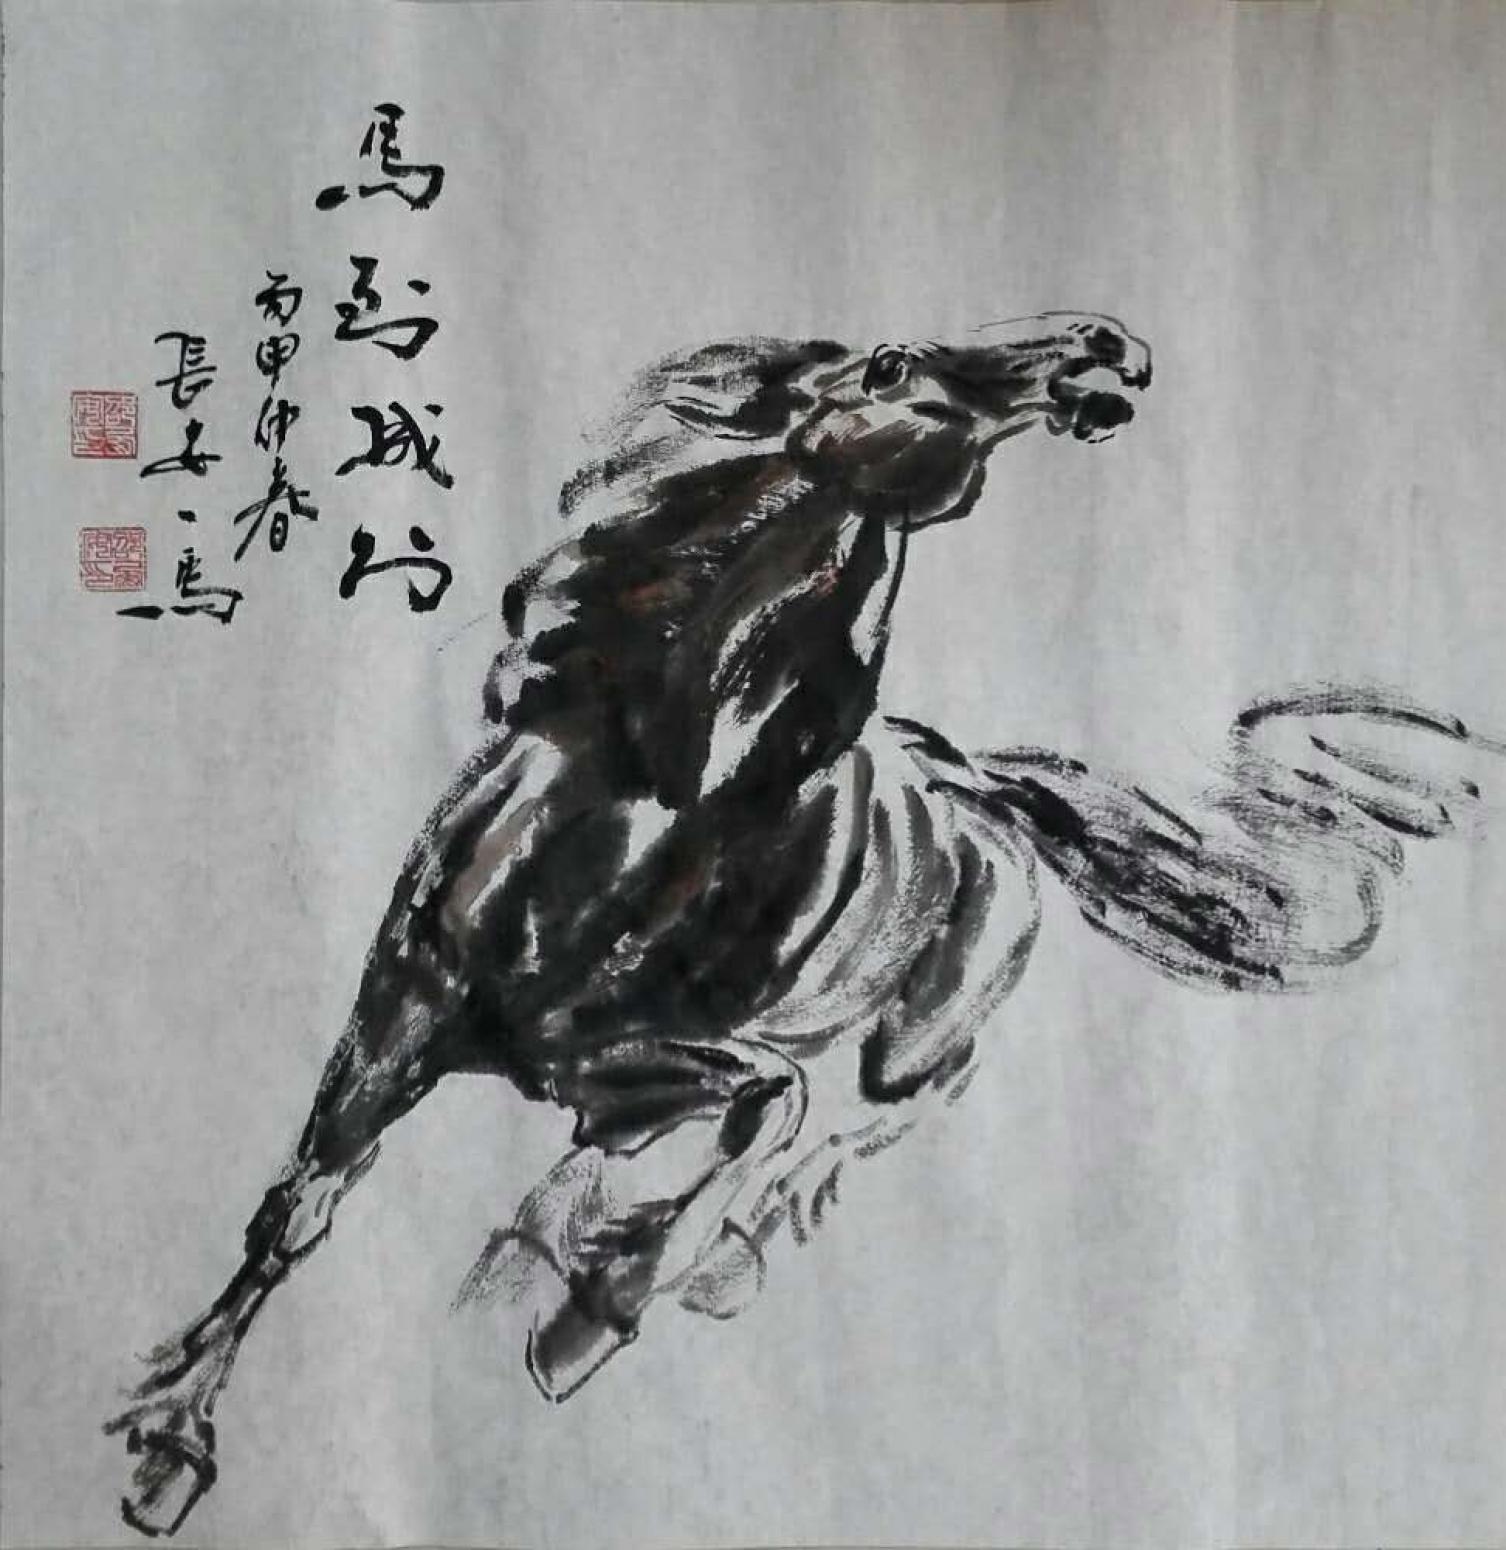 馬到成功
丙申仲春
長安一馬